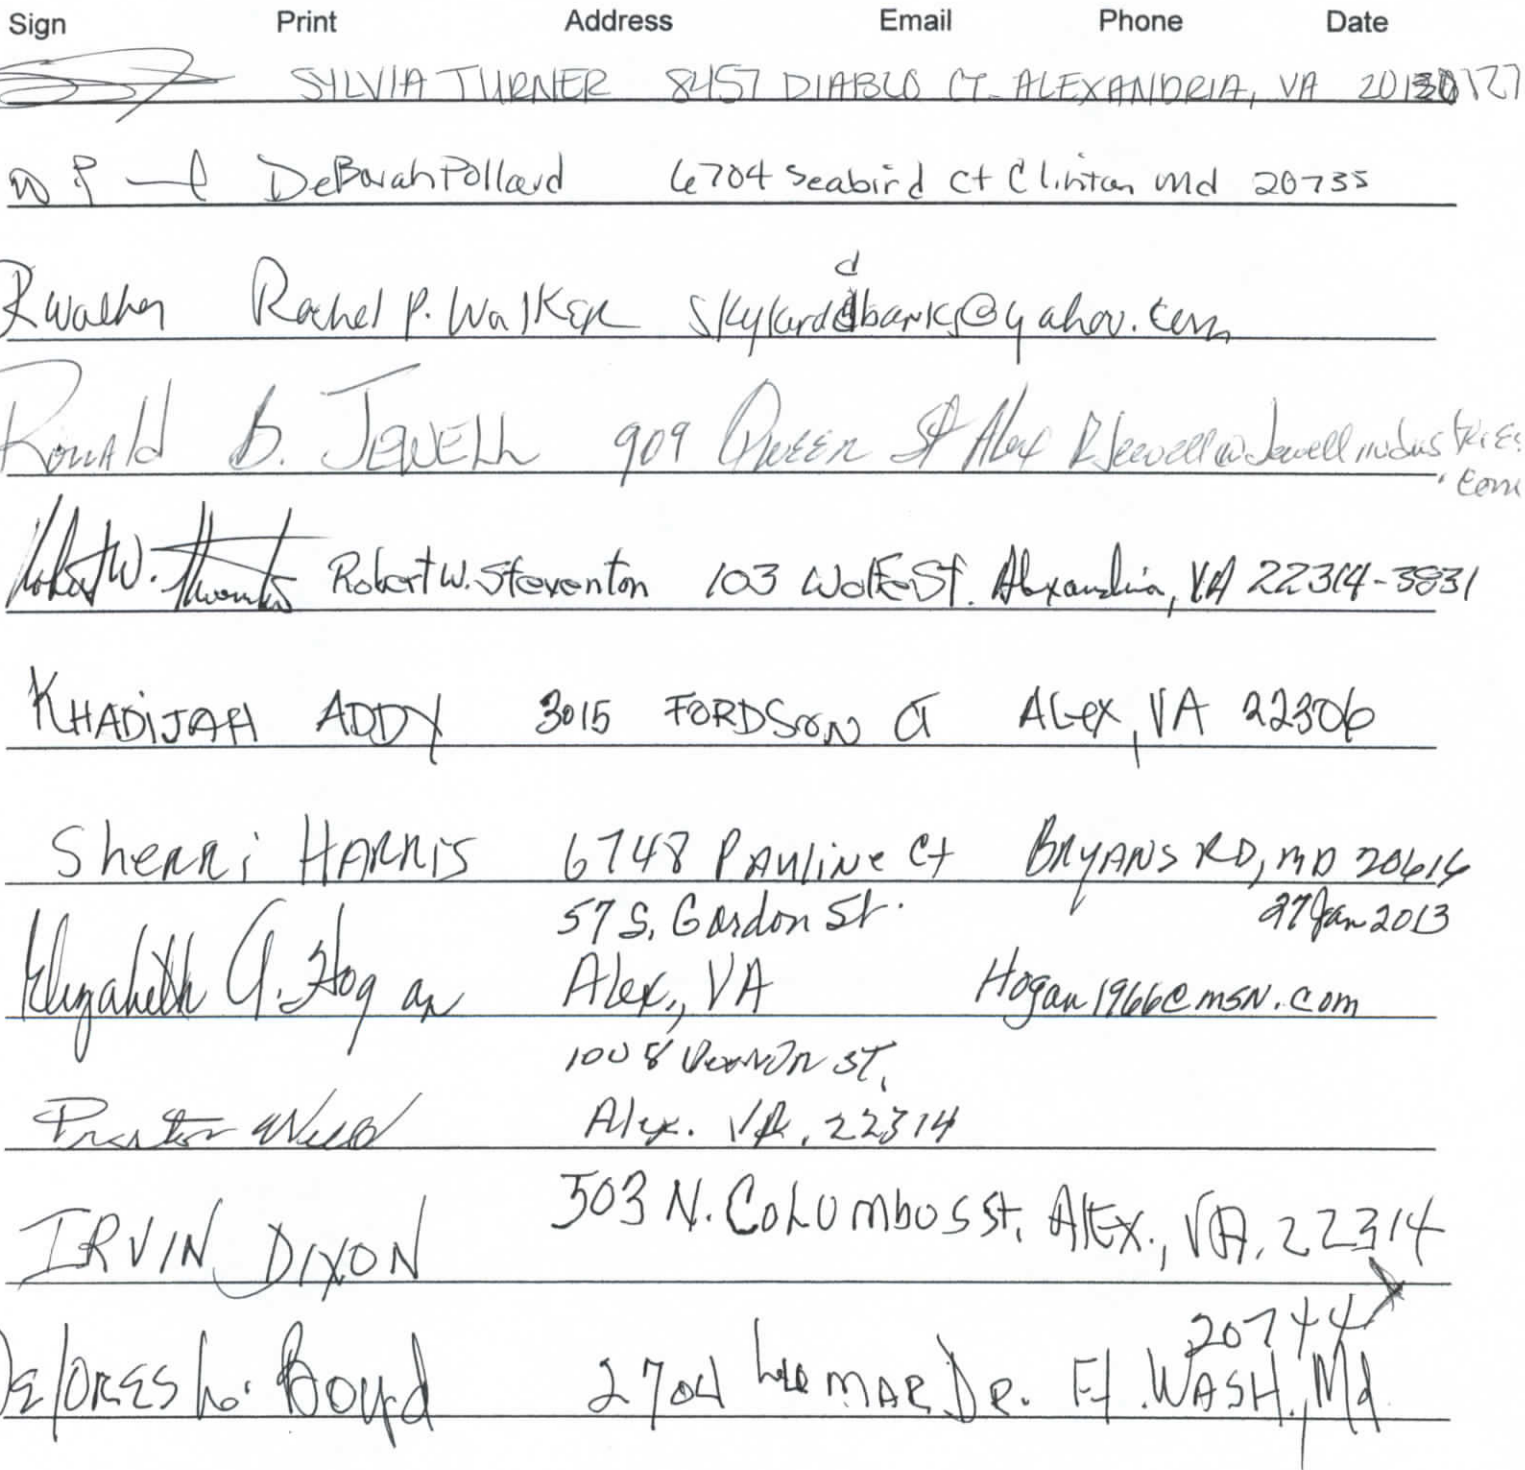 Sign Print Address Email Phone Date
SYLVIA TURNER 8457 DIABLO CT. ALEXANDRIA, VA 20130127
DeBorah Pollard 6704 Seabird Ct Clinton Md 20735
d
RWalker Rachel P. WalKER @yahoo.com
Ronald B. JEWELL 909 Queen St Alex RJewell@Jewellindustries
.com
Robert W. Steventon 103 Wolfe St. Alexandria, VA 22314-3831
KHADIJAH ADDY 3015 FORDSON CT ALEX, VA 22306
Sherri HARRIS 6748 PAULINE Ct BRYANS RD, MD 20616
57 S. Gordon St. 27 Jan 2013
Elizabeth G. Hogan Alex., VA Hogan1966@msn.com
1008 Vernon ST.
Alex. VA. 22314
IRVIN DIXON 503 N. COLUMbOS St. AlEX., VA. 22314
20744
DElORES L. Boyd 2704 MAR Dr. Ft. WASH., Md